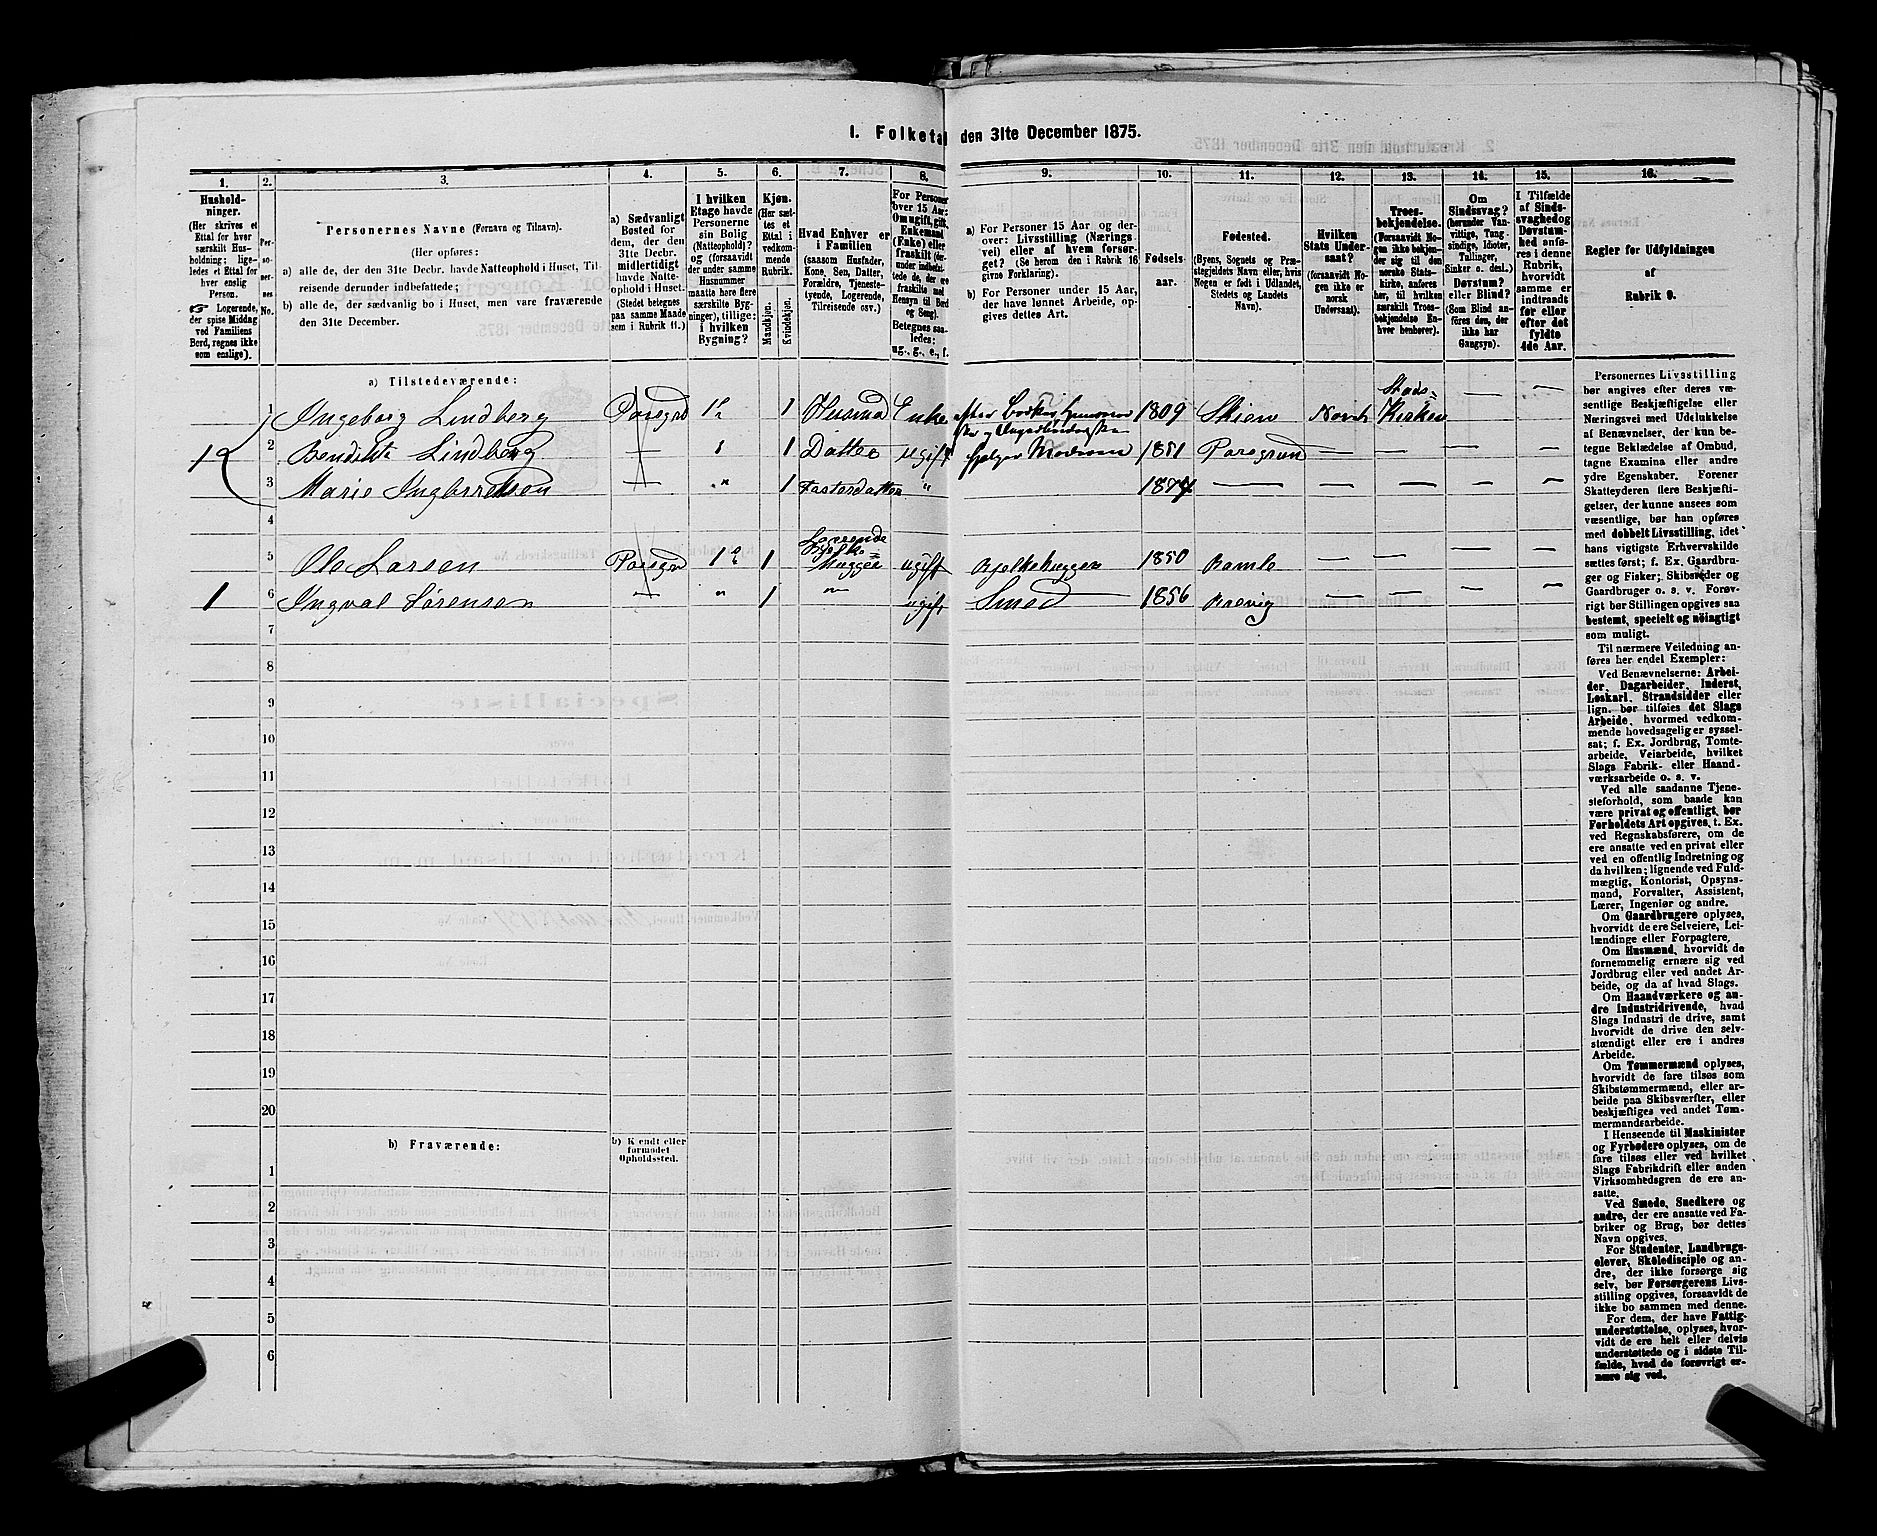 I. Folketal den 31te December 1875.
1. 2. 3. 4. 5. 6. 7. 8. 9. 10. 11. 12. 13. 14. 15. 16.
Hushold-
ninger.
(Her skrives et
Ettal for hver
særskilt Hus-
holdning; lige-
ledes et Ettal for
hver enslig
Person.
☞ Logerende,
der spise Middag
ved Familiens
Bord, regnes ikke
som enslige).
Per-
so-
ner-
nes
No.
Personernes Navne (Fornavn og Tilnavn).
(Her opføres:
a) alle de, der den 31te Decbr. havde Natteophold i Huset, Til-
reisende derunder indbefattede;
b) alle de, der sædvanlig bo i Huset, men vare fraværende
den 31te December.
a) Sædvanligt
Bosted for
dem, der den
31te Decbr.
midlertidigt
havde Natte-
ophold i Huset.
(Stedet betegnes
paa samme Maade
som i Rubrik 11.)
I hvilken
Etage havde
Personerne
sin Bolig
(Natteophold)?
og (forsaavidt
der under samme
Husnummer
maatte høre flere
særskilte Byg-
ninger), tillige:
i hvilken
Bygning?
Kjøn.
(Her sæt-
tes et
Ettal i
vedkom-
mende
Rubrik.
Mandkjøn.
Kvindekjøn.
Hvad Enhver er
i Familien
(saasom Husfader,
Kone, Søn, Datter,
Forældre, Tjeneste-
tyende, Logerende,
Tilreisende osv.)
For Personer
over 15 Aar:
Om ugift, gift,
Enkemand
(Enke) eller
fraskilt (der-
under indbefat-
tede de, der ere
fraskilte med
Hensyn til Bord
og Seng).
Betegnes saa-
ledes:
ug., g., e., f.
a) For Personer 15 Aar og der-
over: Livsstilling (Nærings-
vei) eller af hvem forsør-
get? (Se herom den i Rubrik 16
givne Forklaring).
b) For Personer under 15 Aar,
der have lønnet Arbeide, op-
gives dettes Art.
Fødsels-
aar.
Fødested.
(Byens, Sognets og Præ-
stegjeldets Navn eller, hvis
Nogen er født i Udlandet,
Stedets og Landets
Navn).
Hvilken
Stats Under-
saat?
(forsaavidt No-
gen ikke er
norsk
Undersaat).
Troes-
bekjendelse.
(Forsaavidt No-
gen ikke bekjen-
der sig til den
norske Stats-
kirke, anføres
her, til hvilken
særskilt Troes-
bekjendelse En-
hver henhører).
Om
Sindssvag?
(herunder Van-
vittige, Tung-
sindige, Idioter,
Tullinger,
Sinker o. desl.)
Døvstum?
eller Blind?
(Som Blind an-
føres den, der
ikke har
Gangsyn).
I Tilfælde
af Sinds-
svaghed og
Døvstum-
hed anfø-
res i denne
Rubrik,
hvorvidt
samme er
indtraadt
før eller
efter det
fyldte
4de Aar.
Regler for Udfyldningen
af
Rubrik 9.
a) Tilstedeværende:
1 Ingeborg Lindberg Porsgrd 1 1 Husmod Enke 1809 Skien Norsk Stads= Kirken —
1 2 Bendikte Lindberg — 1 Datter ugift hjelper Moderen 1851 Porsgrund — — — —
3 Marie Ingbretsen — " 1 Fosterdatter " 1874 — — — — —
4
5 Ole Larsen Porsgrd 1 1 Logerende ugift Bjelkehugger 1850 Bamle — — — —
1 6 Ingval Sørensen — " 1 " ugift Smed 1856 Brevig — — — —
7
8
9
10
11
12
13
14
15
16
17
18
19
20
b) Fraværende:
b) Kjendt eller
formodet
Opholdssted.
1
2
3
4
5
6
Personernes Livsstilling
bør angives efter deres væ-
sentlige Beskjæftigelse eller
Næringsvei med Udelukkelse
af Benævnelser, der kun be-
tegne Beklædelse af Ombud,
tagne Examina eller andre
ydre Egenskaber. Forener
Skatteyderen flere Beskjæfti-
gelser, der kunne ansees som
væsentlige, bør han opføres
med dobbelt Livsstilling, idet
hans vigtigste Erhvervskilde
sættes først; f. Ex. Gaardbru-
ger og Fisker; Skibsreder og
Gaardbruger o. s. v. Forøv-
rigt bør Stillingen opgives saa
bestemt, specielt og nøiagtigt
som muligt.
Til nærmere Veiledning an-
føres her endel Exempler:
Ved Benævnelserne: Arbei-
der, Dagarbeider, Inderst,
Løskarl, Strandsidder eller
lign. bør tilføies det Slags
Arbeide, hvormed vedkom-
mende hovedsagelig er syssel-
sat; f. Ex. Jordbrug, Tomte-
arbeide, Veiarbeide, hvilket
Slags Fabrik- eller Haand-
værksarbeide o. s. v.
Ved alle saadanne Tjene-
steforhold, som baade kan
være privat og offentligt, bør
Forholdets Art opgives, t. Ex.
ved Regnskabsførere, om de
ere ansatte ved en privat eller
ved en offentlig Indretning og
da hvilken; lignende ved Fuld-
mægtig, Kontorist, Opsyns-
mand, Forvalter, Assistent,
Lærer, Ingeniør og andre.
Om Gaardbrugere oplyses,
hvorvidt de ere Selveiere, Lei-
lændinge eller Forpagtere.
Om Husmænd, hvorvidt de
fornemmelig ernære sig ved
Jordbrug eller ved andet Ar-
beide, og da af hvad Slags.
Om Haandværkere og an-
dre Industridrivende, hvad
Slags Industri de drive, samt
hvorvidt de drive den selv-
stændigt eller ere i andres
Arbeide.
Om Tømmermænd oplyses,
hvorvidt de fare tilsøs som
Skibstømmermænd, eller ar-
beide paa Skibsværfter, eller
beskjæftiges ved andet Tøm-
mermandsarbeide.
I Henseende til Maskinister
og Fyrbødere oplyses, om de
fare tilsøs eller ved hvilket
Slags Fabrikdrift eller anden
Virksomhedsgren de ere an-
satte.
Ved Smede, Snedkere og
andre, der ere ansatte ved Fa-
briker og Brug, bør dettes
Navn opgives.
For Studenter, Landbrugs-
elever, Skoledisciple og an-
dre, der ikke forsørge sig
selv, bør Forsørgerens Livs-
stilling opgives, forsaavidt de
ikke bo sammen med denne.
For dem, der have Fattig-
understøttelse, oplyses, hvor-
vidt de ere helt eller delvis
understøttede og i sidste Til-
fælde, hvad de forøvrigt er-
nære sig ved.